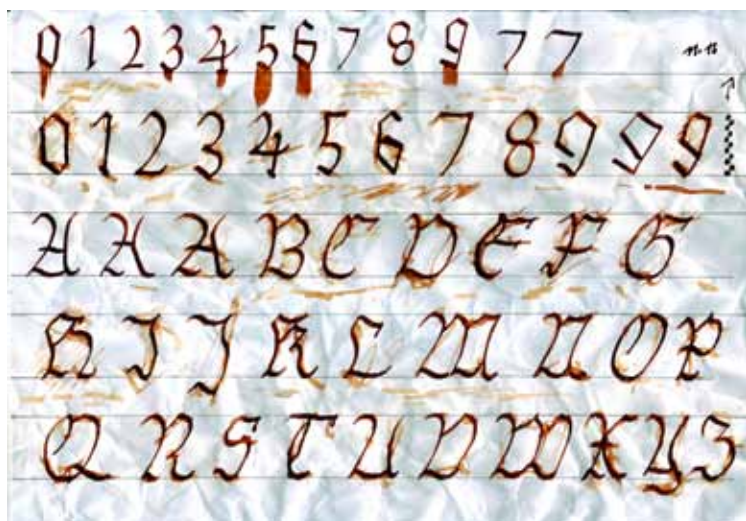 0 1 2 3 4 5 6 7 8 9 7 7
0 1 2 3 4 5 6 7 8 9 9 9
A A A B C D E F G
H I J K L M N O P
Q R S T U V W X Y Z